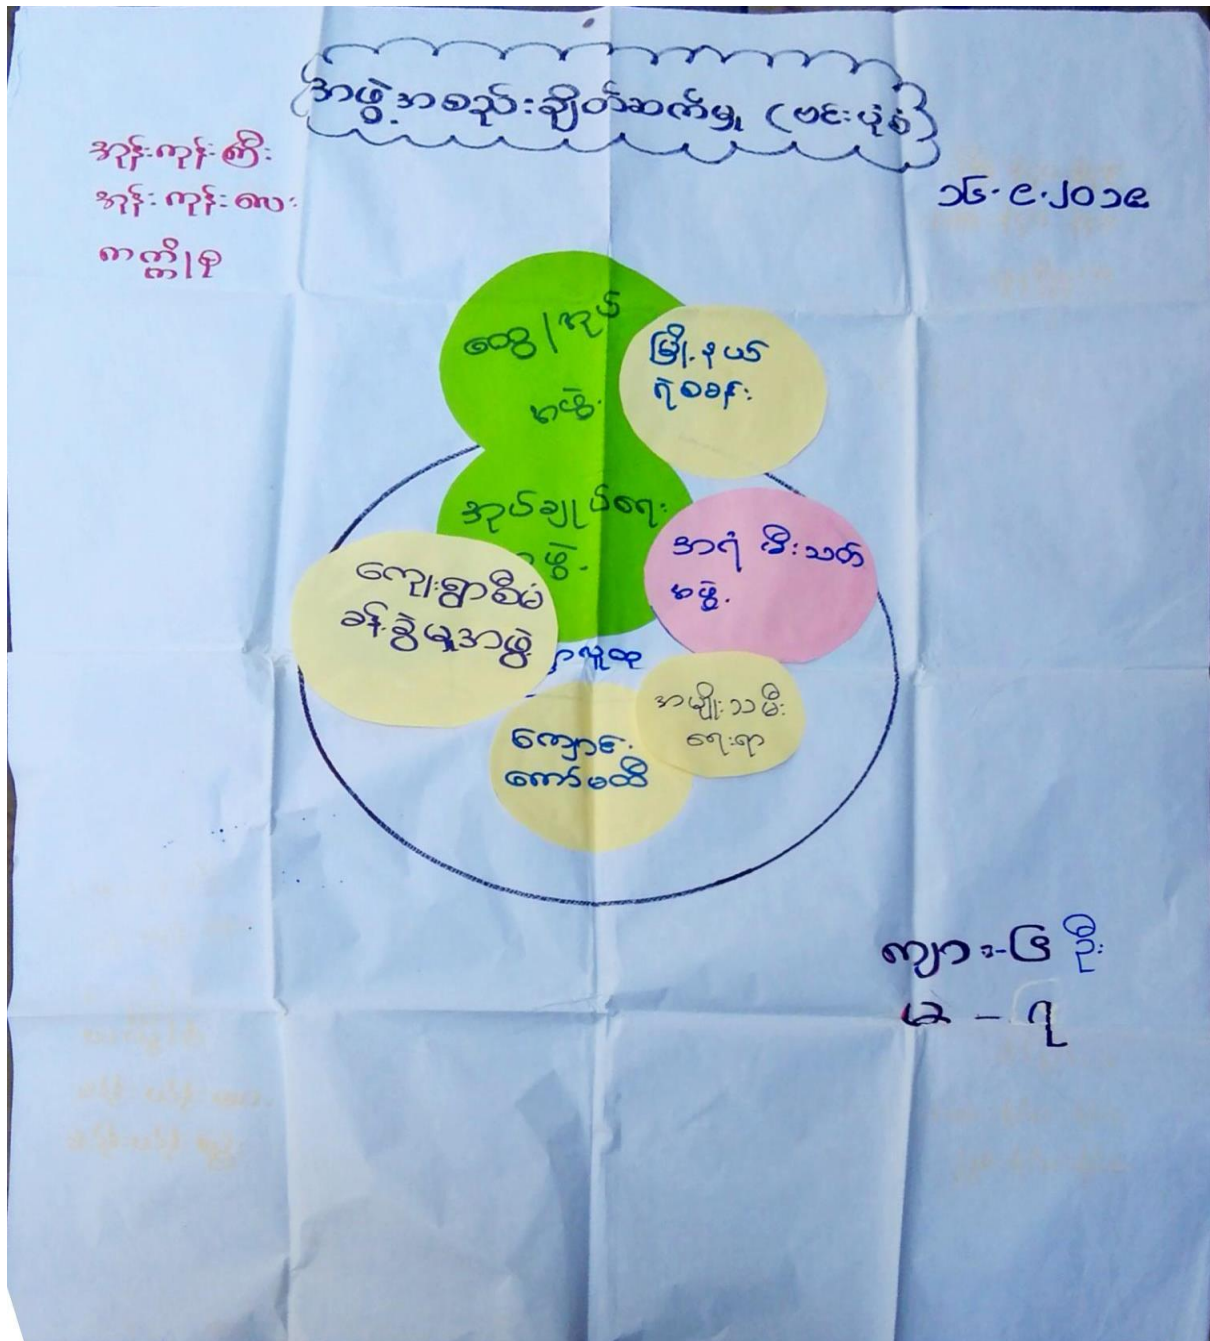 အဖွဲ့အစည်းချိတ်ဆက်မှု (ဗင်းပုံစံ)
အုန်းကုန်းကြီး
အုန်းကုန်းလေး
၁၆.၉.၂၀၁၉
ထွေ/အုပ်
အဖွဲ့
မြို့နယ်
ရဲစခန်း
အုပ်ချုပ်ရေး
အရံ မီးသတ်
အဖွဲ့
ကျေးရွာစီမံ
ခန့်ခွဲမှုအဖွဲ့
လူထု
အမျိုးသမီး
ရေးရာ
ကျောင်း
ကော်မတီ
ကျား-၆ ဦး
မ - ၇